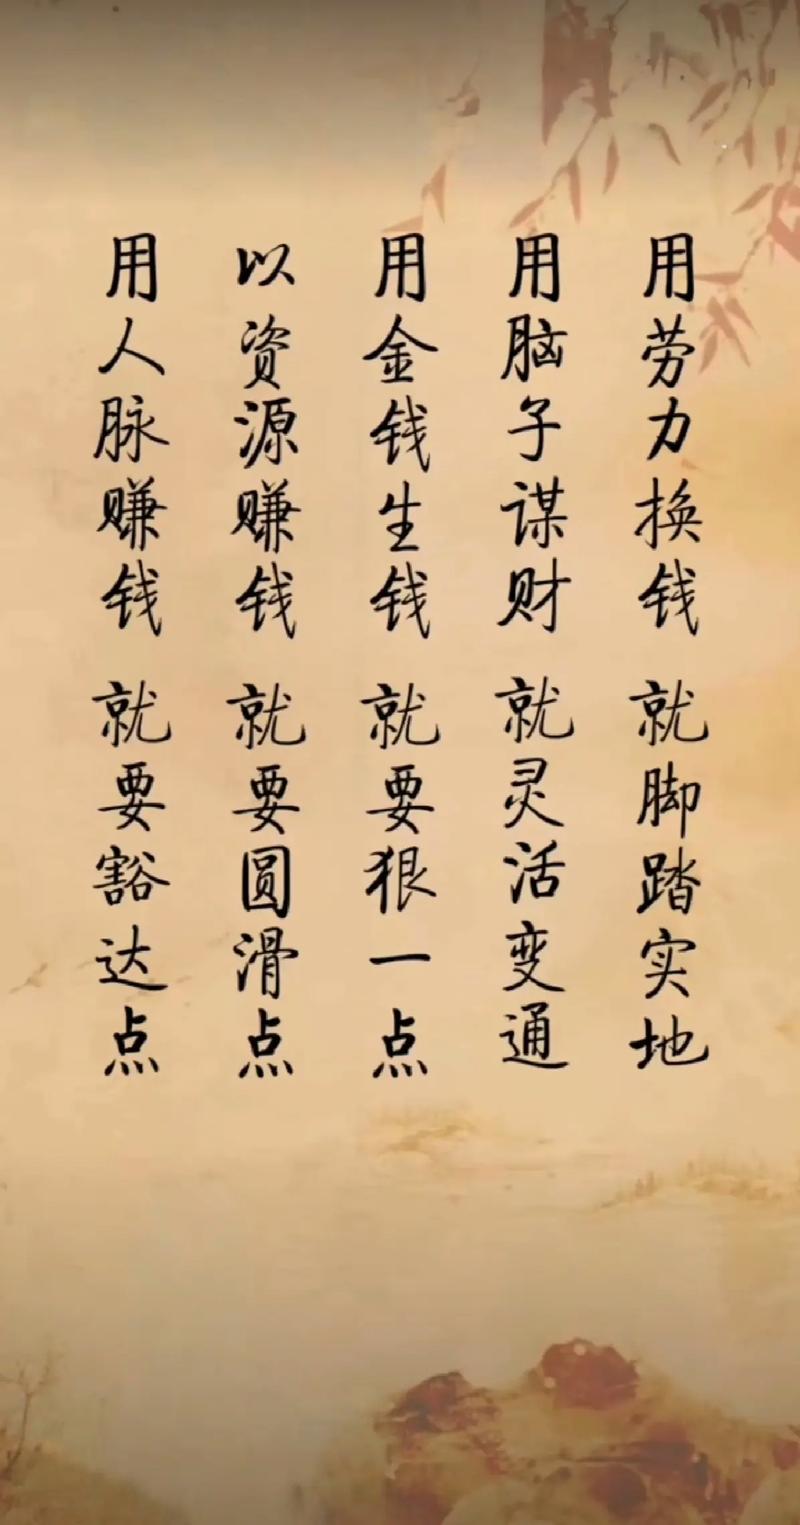 用劳力换钱 就脚踏实地
用脑子谋财 就灵活变通
用金钱生钱 就要狠一点
以资源赚钱 就要圆滑点
用人脉赚钱 就要豁达点